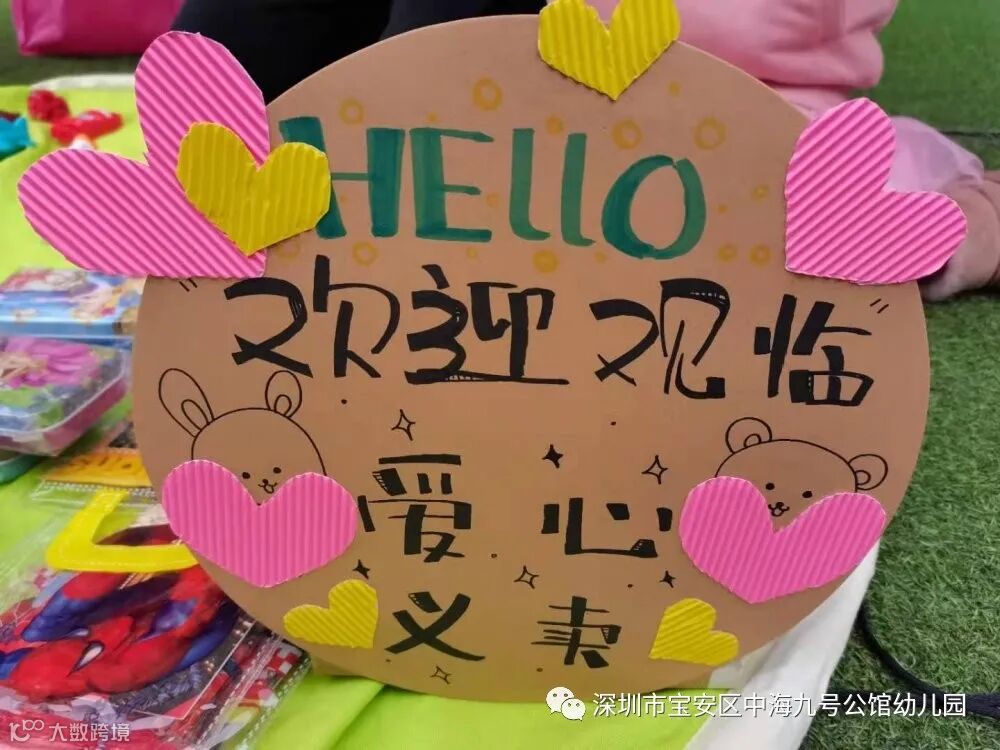 HELLO
欢迎观临
爱心
义卖
深圳市宝安区中海九号公馆幼儿园
大数跨境